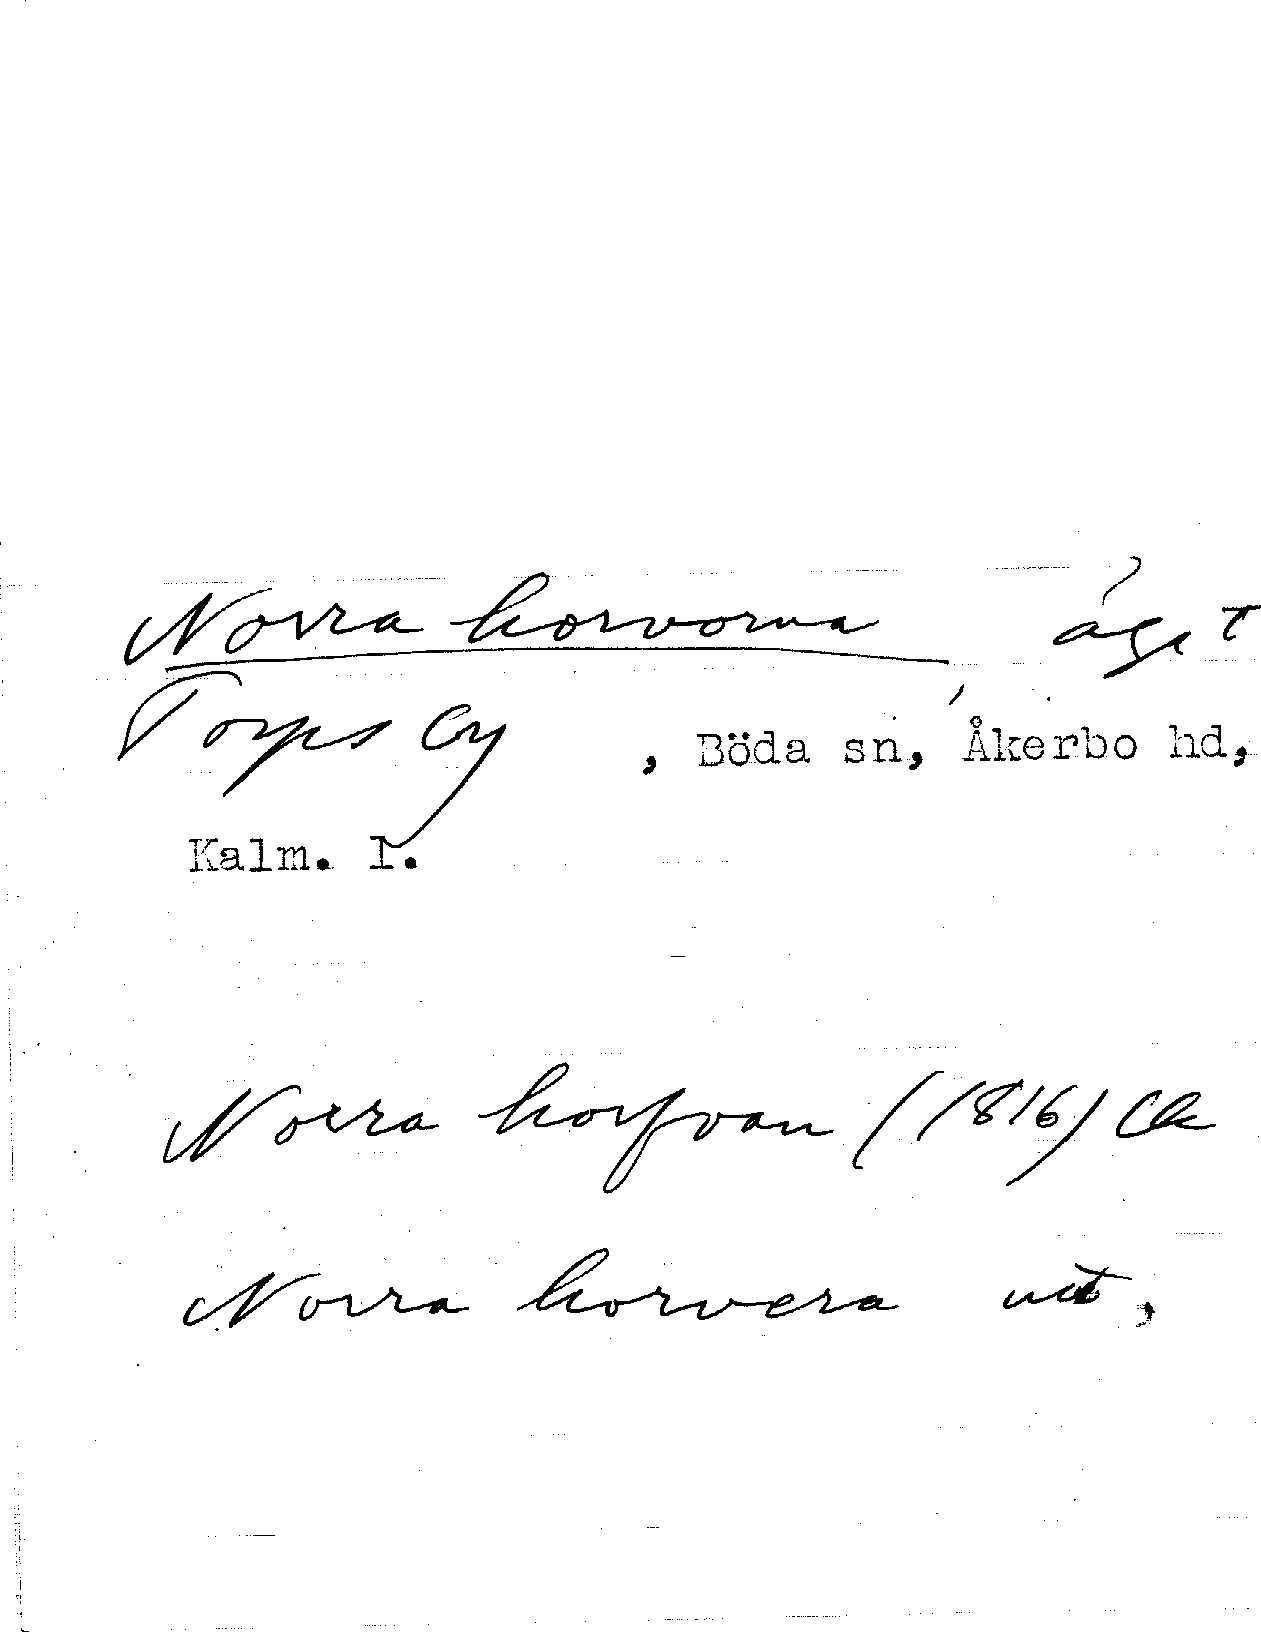 Norra horvorna äget
Torps by, Böda sn, Åkerbo hd,
Kalm. l.
Norra horfvan (1816) Ck
Norra horvera utt,